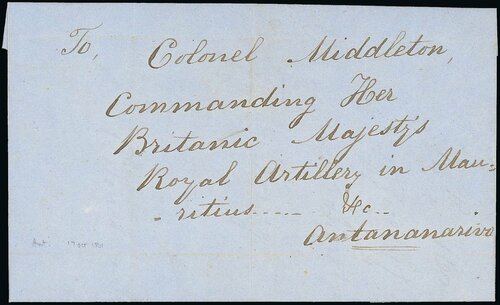 To, Colonel Middleton,
Commanding Her
Britanic Majestys
Royal Artillery in Mau=
-ritius..... &c..
Antananarivo
Ant. 17 Oct